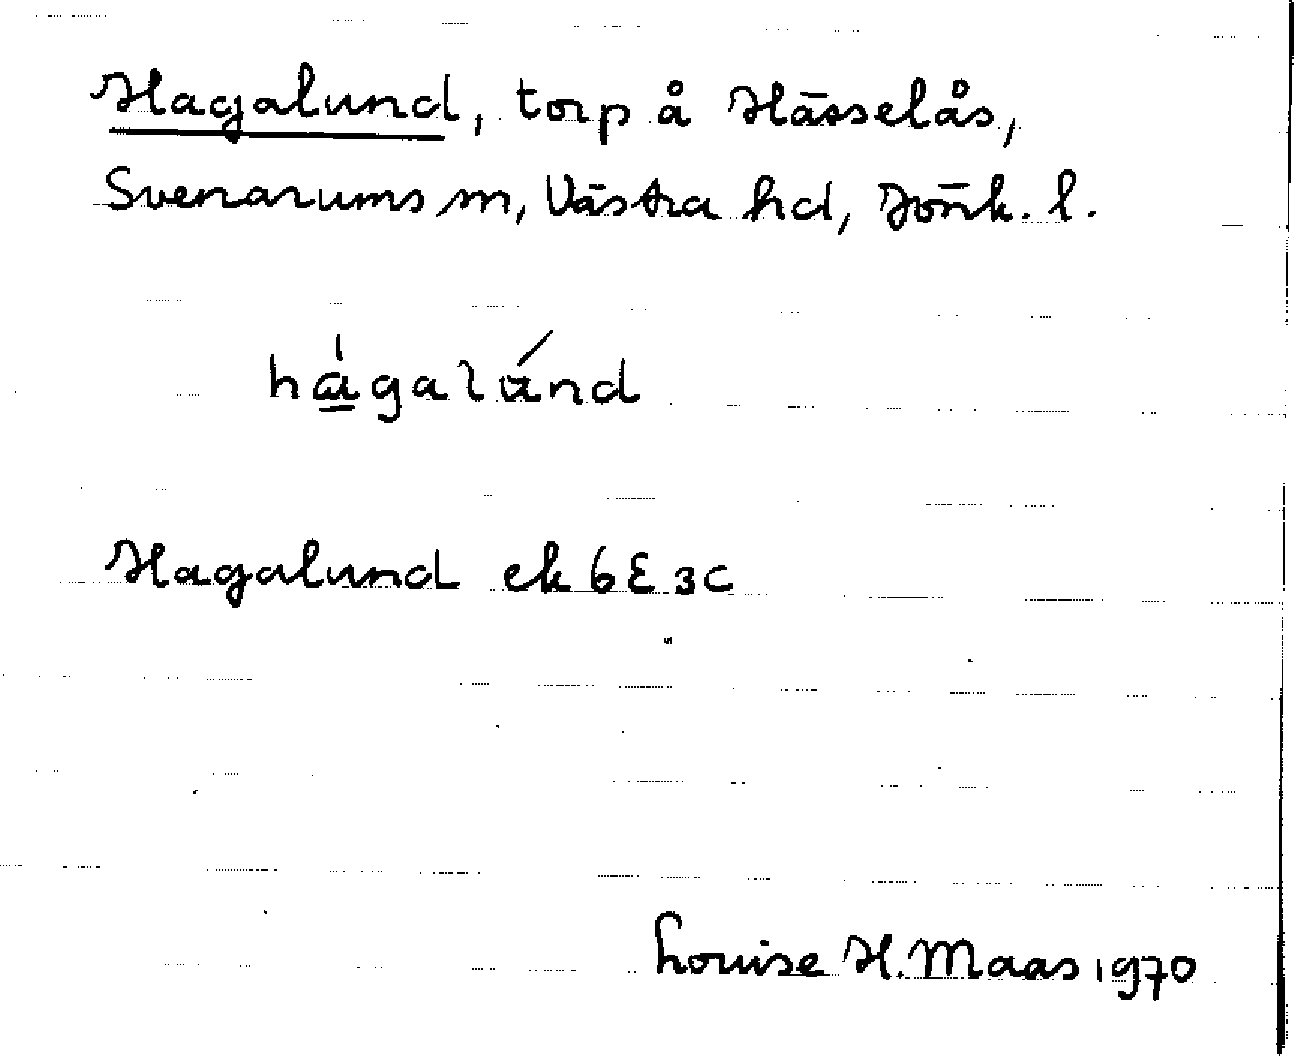 Hagalund, torp å Hässelås,
Svenarums sn, Västra hd, Jönk. l.
hágalúnd
Hagalund ek 6E3c
Louise H. Maas 1970